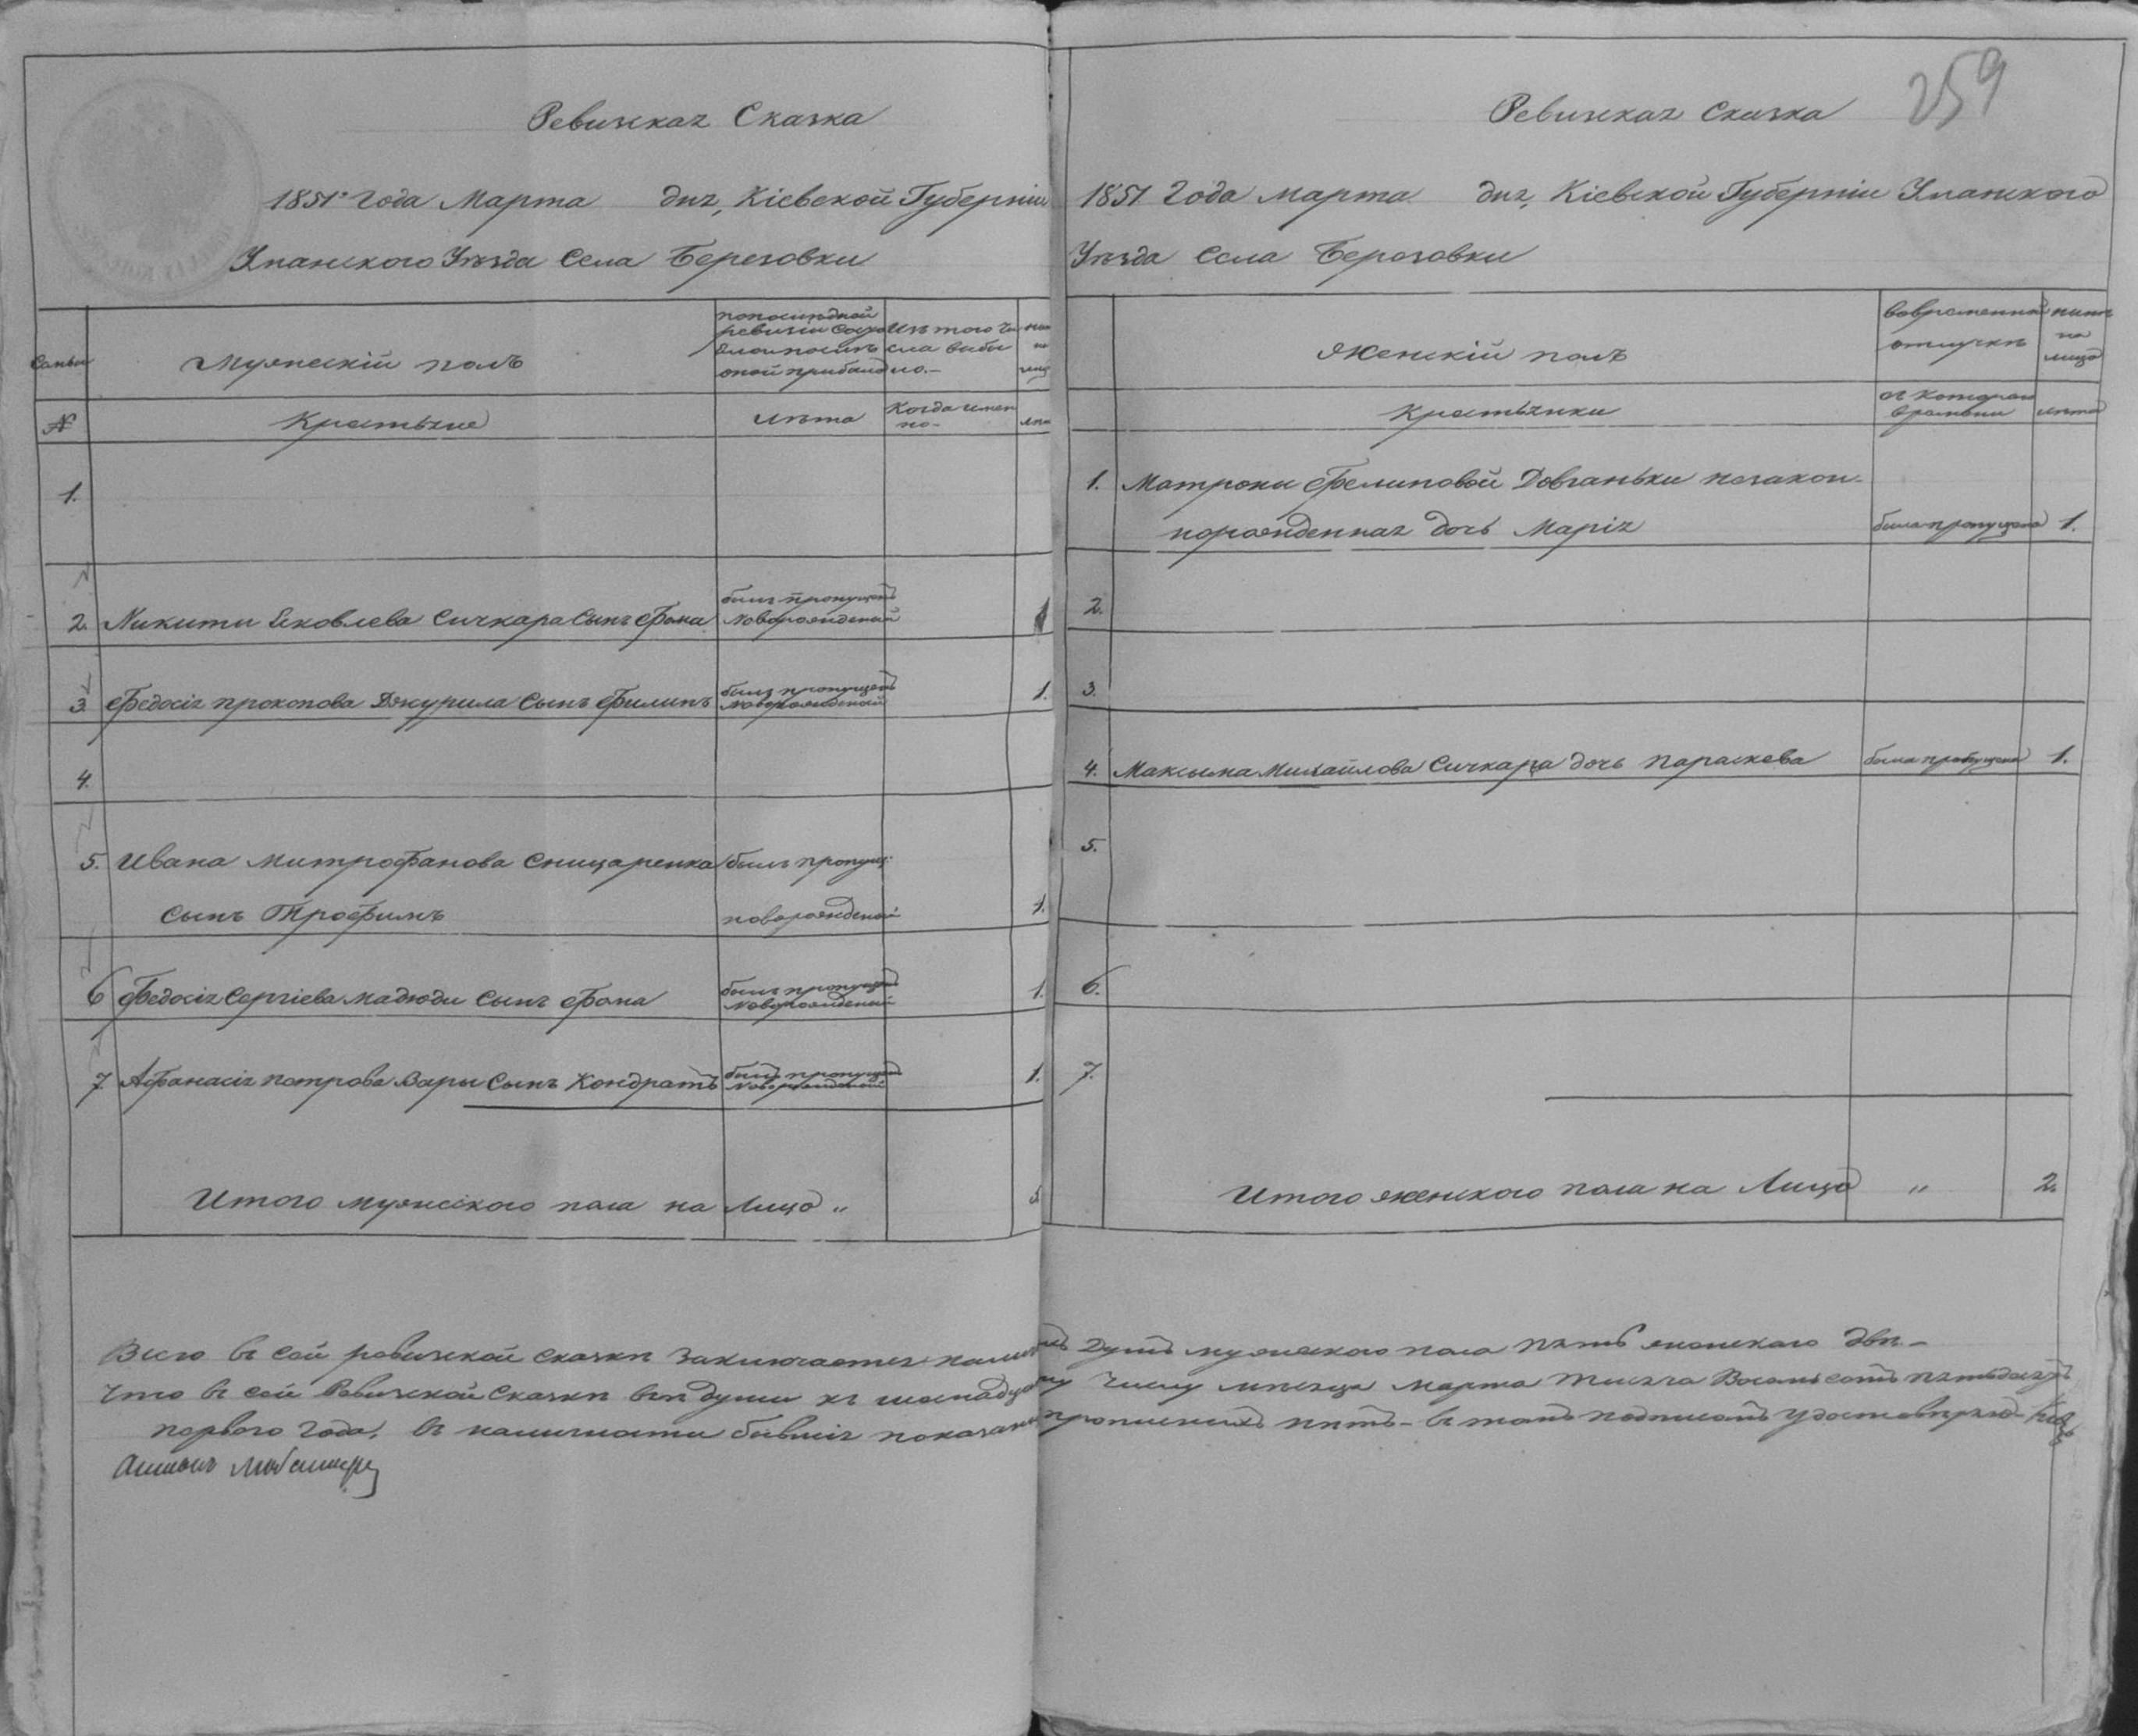 Ревизская Сказка
1851 года Марта дня, Кіевской Губерніи
Уманского Уѣзда Села Березовки
Семьи
Мужескій полъ
по последной ревизіи состояло и после оной прибыло
Изъ того числа выбыло.
№
Крестьяне
лѣта
Когда именно
1.
2. Никити Яковлева Сичкара Сынъ Фома
былъ пропущенъ Новорожденый
1
3. Федосія Прокопова Джурила Сынъ Филипъ
былъ пропущенъ Новорожденый
1.
4.
5. Ивана Митрофанова Сницаренка
былъ пропущ:
Сынъ Трофимъ
новорожденый
1.
6 Федосія Сергіева Сынъ Фома
былъ пропущенъ Новорожденый
1.
7. Афанасія Петрова Вары Сынъ Кондратъ
былъ пропущенъ Новорожденой
1.
Итого мужеского пола на Лицо „
5
259
Ревизская Сказка
1851 Года Марта дня, Кіевской Губерніи Уманского
Уѣзда Села Березовки
Женскій полъ
во временной отлучкѣ
нынѣ на лицо
Крестьянки
съ котораго времени
лѣта
1. Матроны Фелиповой Довганьки незакон-
норожденная дочь Марія
была пропущена
1.
2.
3.
4. Максыма Михайлова Сичкара дочь Параскева
была пропущена
1.
5.
6.
7.
Итого женского пола на Лицо „
2.
Всего въ сей ревизской сказкѣ заключается налицо душъ мужеского пола пять женского двѣ.-
Что въ сей Ревизской Сказкѣ всѣ души къ числу мѣсяца Марта тысяча Восемь сотъ пятьдесятъ
первого года, въ наличности бывшія показаны въ томъ подписомъ